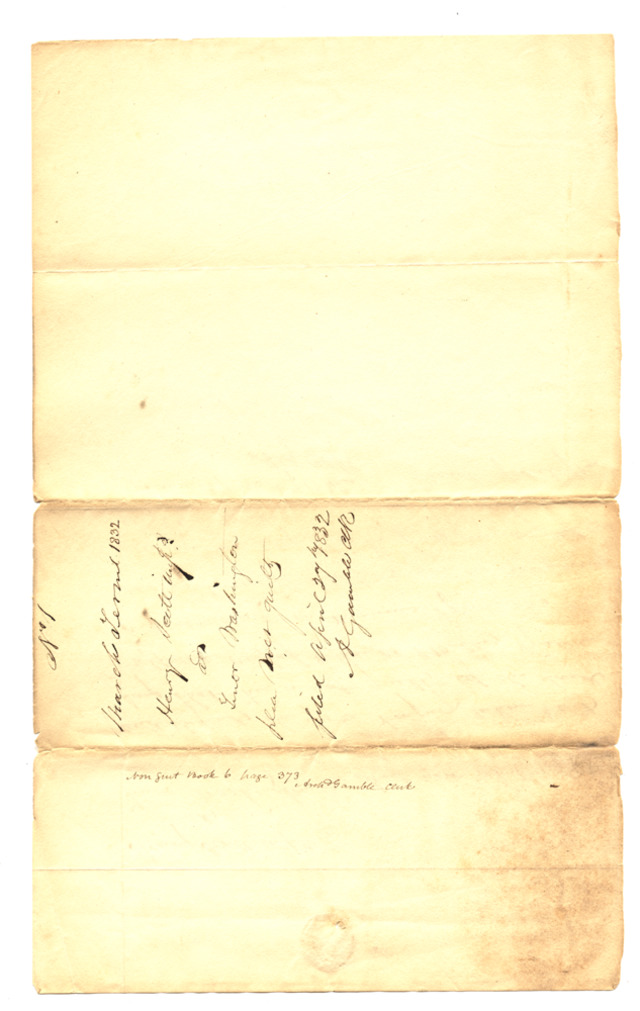 No 1
March Term 1832
Henry
vs
Washington
plea not guilty
filed April 27th 1832
A Gamble Clk
Non Suit Book 6 page 373
Archd Gamble Clerk